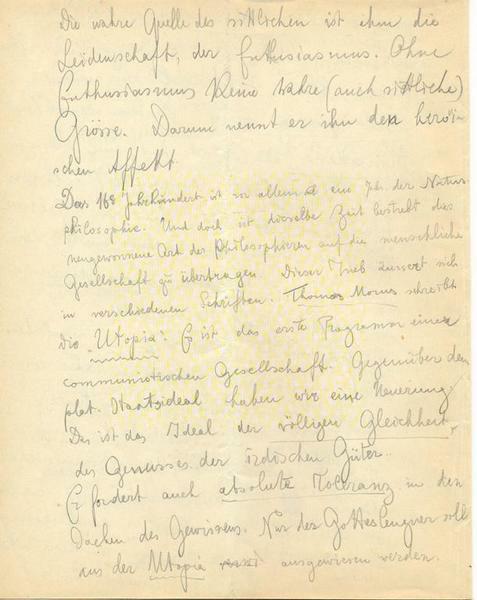 Die wahre Quelle des sittlichen ist ihm die
Leidenschaft, der Enthusiasmus. Ohne
Enthusiasmus keine wahre (auch sittliche)
Grösse. Darum nennt er ihn den heroi-
schen Affekt
Das 16e Jahrhundert ist vor allem ein Jh. der Natur-
philosophie. Und doch ist dieselbe Zeit bestrebt das
neugewonnene Art des Philosophieren auf die menschliche
Gesellschaft zu übertragen. Dieser Trieb äussert sich
in verschiedenen Schriften. Thomas Morus schreibt
die "Utopia". Es ist das erste Programm einer
communistischen Gesellschaft. Gegenüber dem
plat. Staatsideal haben wir eine Neuerung
Das ist das Ideal der völligen Gleichheit,
des Genusses der irdischen Güter.
Er fordert auch absolute Toleranz in den
Sachen des Gewissens. Nur der Gottesleugner soll
aus der Utopia ausgewiesen werden.